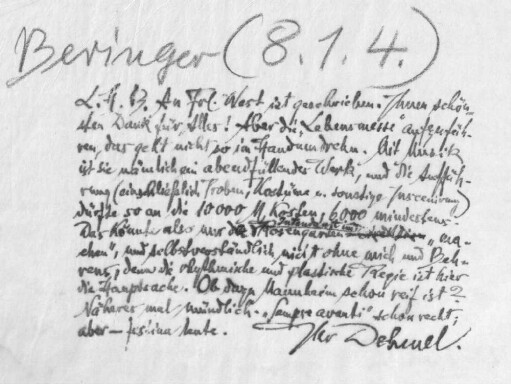 Beringer (8.1.4.)
L. H. B. An Frl. West ist geschrieben. Ihnen schön-
sten Dank für Alles! Aber die „Lebensmesse" aufzufüh-
ren, das geht nicht so im Handumdrehn. Mit Musik
ist sie nämlich ein abendfüllendes Werk, und die Auffüh-
rung (einschließlich Proben, Kostüme u. sonstige Inscenirung)
dürfte so an die 10000 M kosten, 6000 mindestens.
Das könnte also nur die Intendanz und „ma-
chen", und selbstverständlich nicht ohne mich und Beh-
rens; denn die rhythmische und plastische Regie ist hier
die Hauptsache. Ob dazu Mannheim schon reif ist?
Näheres mal mündlich. „Sempre avanti" schon recht;
aber — festina lente.
Ihr Dehmel.